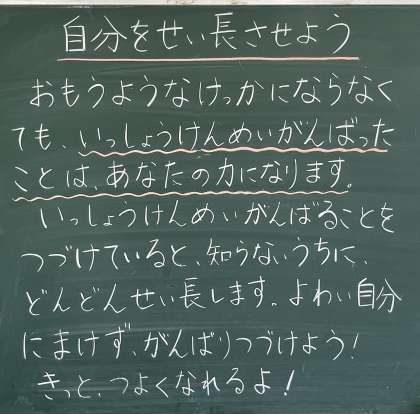 自分をせい長させよう
おもうようなけっかにならなく
ても、いっしょうけんめいがんばった
ことは、あなたの力になります。
いっしょうけんめいがんばることを
つづけていると、知らないうちに、
どんどんせい長します。よわい自分
にまけず、がんばりつづけよう！
きっと、つよくなれるよ！